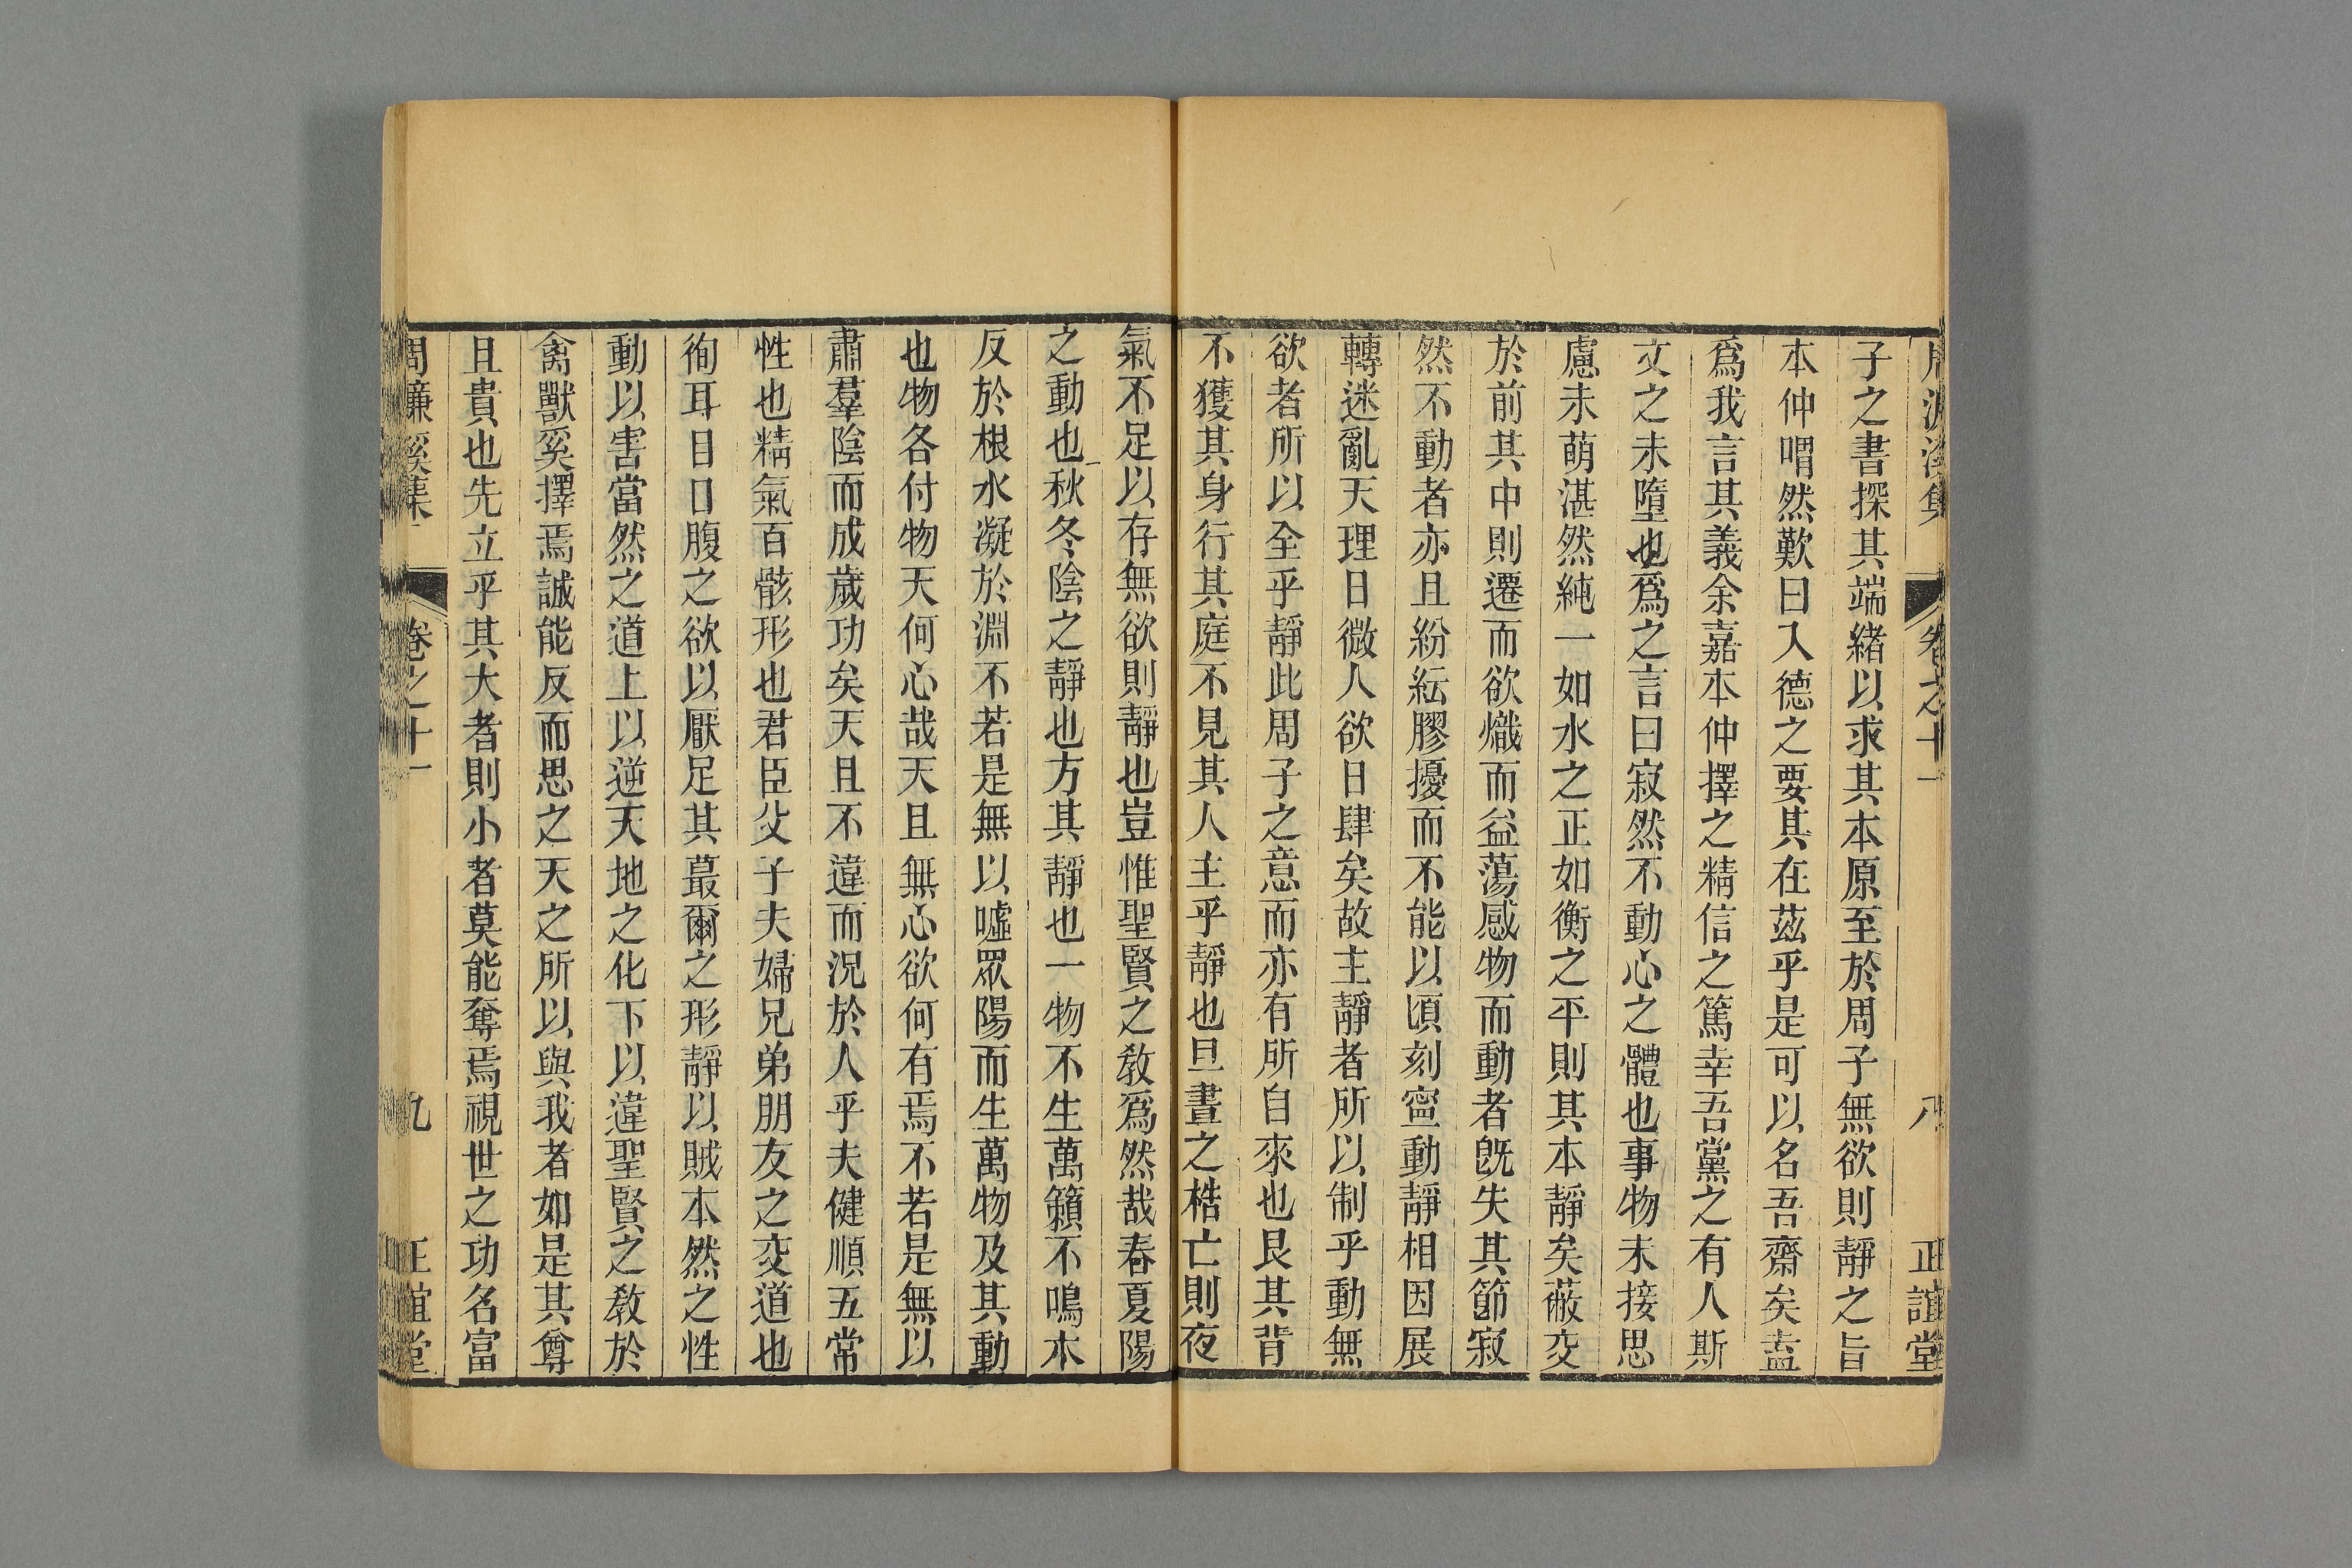 子之書探其端緒以求其本原至於周子無欲則靜之旨
本仲喟然歎曰入德之要其在茲乎是可以名吾齋矣盍
爲我言其義余嘉本仲擇之精信之篤幸吾黨之有人斯
文之未墮也爲之言曰寂然不動心之體也事物未接思
慮未萌湛然純一如水之正如衡之平則其本靜矣蔽交
於前其中則遷而欲熾而益蕩感物而動者旣失其節寂
然不動者亦且紛紜膠擾而不能以頃刻寍動靜相因展
轉迷亂天理日微人欲日肆矣故主靜者所以制乎動無
欲者所以全乎靜此周子之意而亦有所自來也艮其背
不獲其身行其庭不見其人主乎靜也旦晝之梏亡則夜
氣不足以存無欲則靜也豈惟聖賢之敎爲然哉春夏陽
之動也秋冬陰之靜也方其靜也一物不生萬籟不鳴木
反於根水凝於淵不若是無以噓眾陽而生萬物及其動
也物各付物天何心哉天且無心欲何有焉不若是無以
肅羣陰而成歲功矣天且不違而況於人乎夫健順五常
性也精氣百骸形也君臣父子夫婦兄弟朋友之交道也
徇耳目口腹之欲以厭足其蕞爾之形靜以賊本然之性
動以害當然之道上以逆天地之化下以違聖賢之敎於
禽獸奚擇焉誠能反而思之天之所以與我者如是其尊
且貴也先立乎其大者則小者莫能奪焉視世之功名富
周濂溪集 卷之十一 九 正誼堂